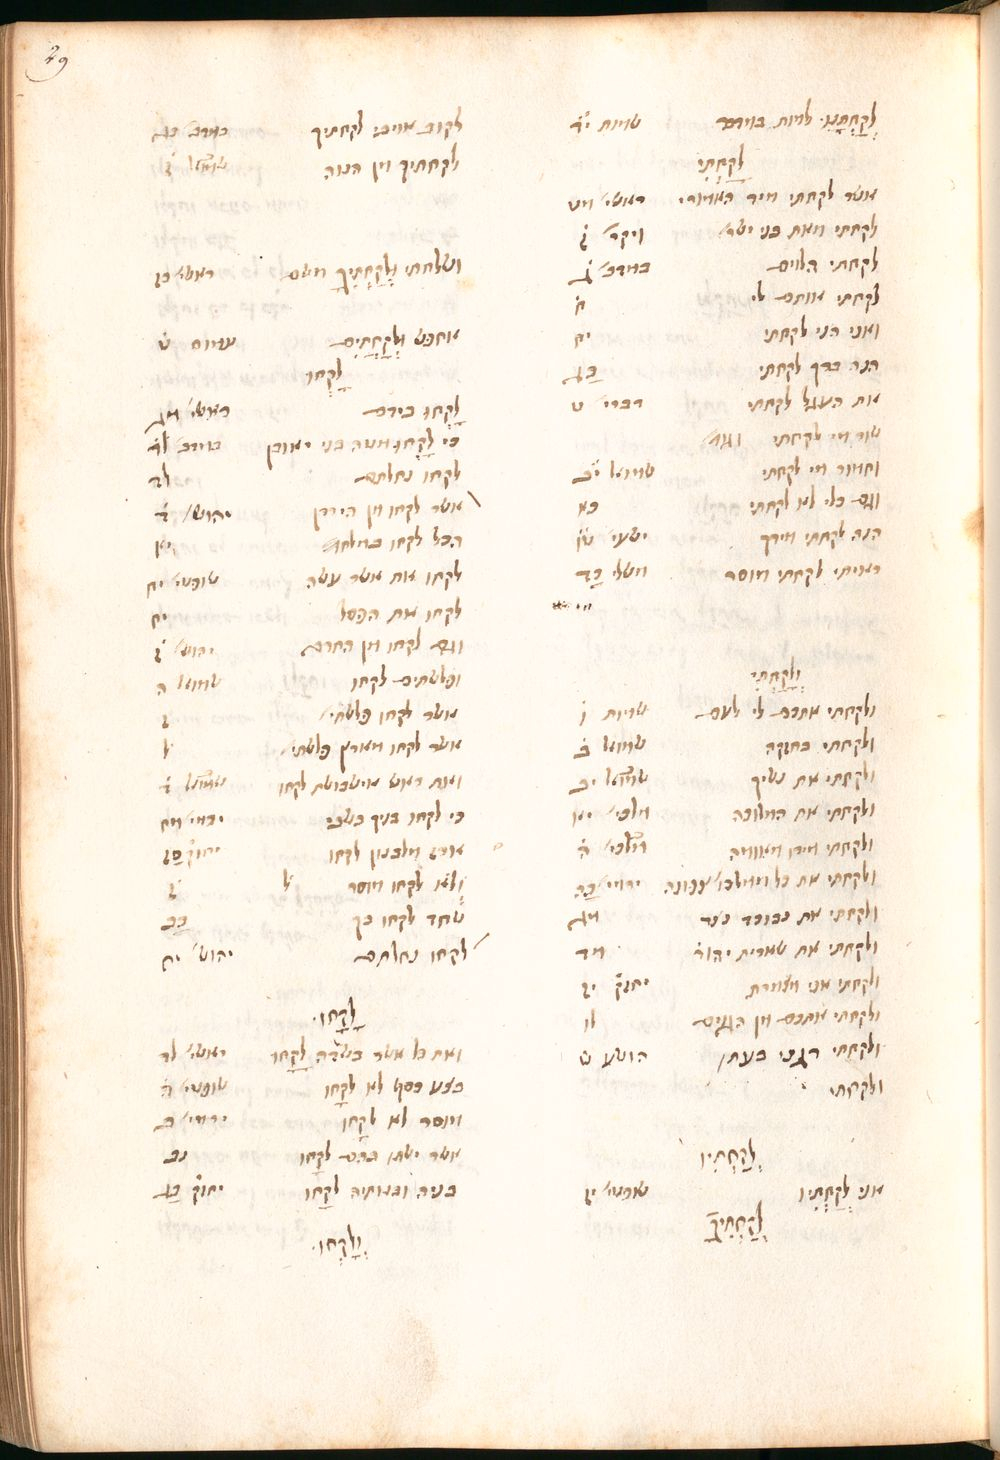 29
לְקַחְתָּנוּ לרות במדבר שמות יד
לָקַחְתִּי
אשר לקחתי מיד האמורי ראשי מט
לקחתי מאת בני ישר' ויקר' ז
לקחתי הלוים במדב' ג
לקחתי אותם לי ח
ואני הנה לקחתי יח
הנה ברך לקחתי כג
את העגל לקחתי דברי' ט
שור מי לקחתי וגו'
וחמור מי לקחתי שמואל יב
וגם כלי לא לקחתי כא
הנה לקחתי מידך ישעי' נא
ראיתי לקחתי מוסר משלי כד
וְלָקַחְתִּי
ולקחתי אתכם לי לעם שמות ו
ולקחתי במקנה שמואל ב
ולקחתי את נשיך שמואל יב
ולקחתי את המלוכה מלכי' יא
ולקחתי מידו מאומה מלכי' ה
ולקחתי את כל וממלכו' צפונה ירמי' כה
ולקחתי את נבוכד נצר מג
ולקחתי את שארית יהוד' מד
ולקחתי אני מצמרת יחזק' יז
ולקחתי אתכם מן הגוים לו
ולקחתי דגני בעתו הושע ט
ולקחתי
לְקַחְתִּיו
אני לְקַחְתִּיו שופטי' יז
לְקַחְתִּיךָ
לקוב אויבי לקחתיך במדב' כג
לקחתיך מן הנוה שמואל ז
ושלחתי וּלְקַחְתִּיךָ משם ראשי' כז
אחפש וּלְקַחְתִּים עמוס ט
לָקְחוּ
לקחו בידם ראשי' מג
כי לקחו מטה בני ראובן במדב' לד
לקחו נחלתם לד
אשר לקחו מן הירדן יהוש' ד
הכל לקחו במלחמ' יא
לקחו את אשר עשה שופטי' יח
לקחו את הפסל יח
וגם לקחו מן החרם יהוש' ז
ופלשתים לקחו שמואל ה
אשר לקחו פלשתי' ז
אשר לקחו מארץ פלשתי' ל
ואת ראש אישבושת לקחו שמואל ד
כי לקחו בניך בשבי ירמי' מח
ארז מלבנון לקחו יחזק' כז
ולא לקחו מוסר ל
שחד לקחו בך כב
לקחו נחלתם יהוש' יח
לָקָחוּ
ואת כל אשר בשדה לָקָחוּ ראשי' לד
בצע כסף לא לָקָחוּ שופטי' ה
מוסר לא לָקָחוּ ירמי' ב
אשר ישתו בהם לָקָחוּ נב
בניה ובנותיה לָקָחוּ יחזק' כג
וְלָקְחוּ